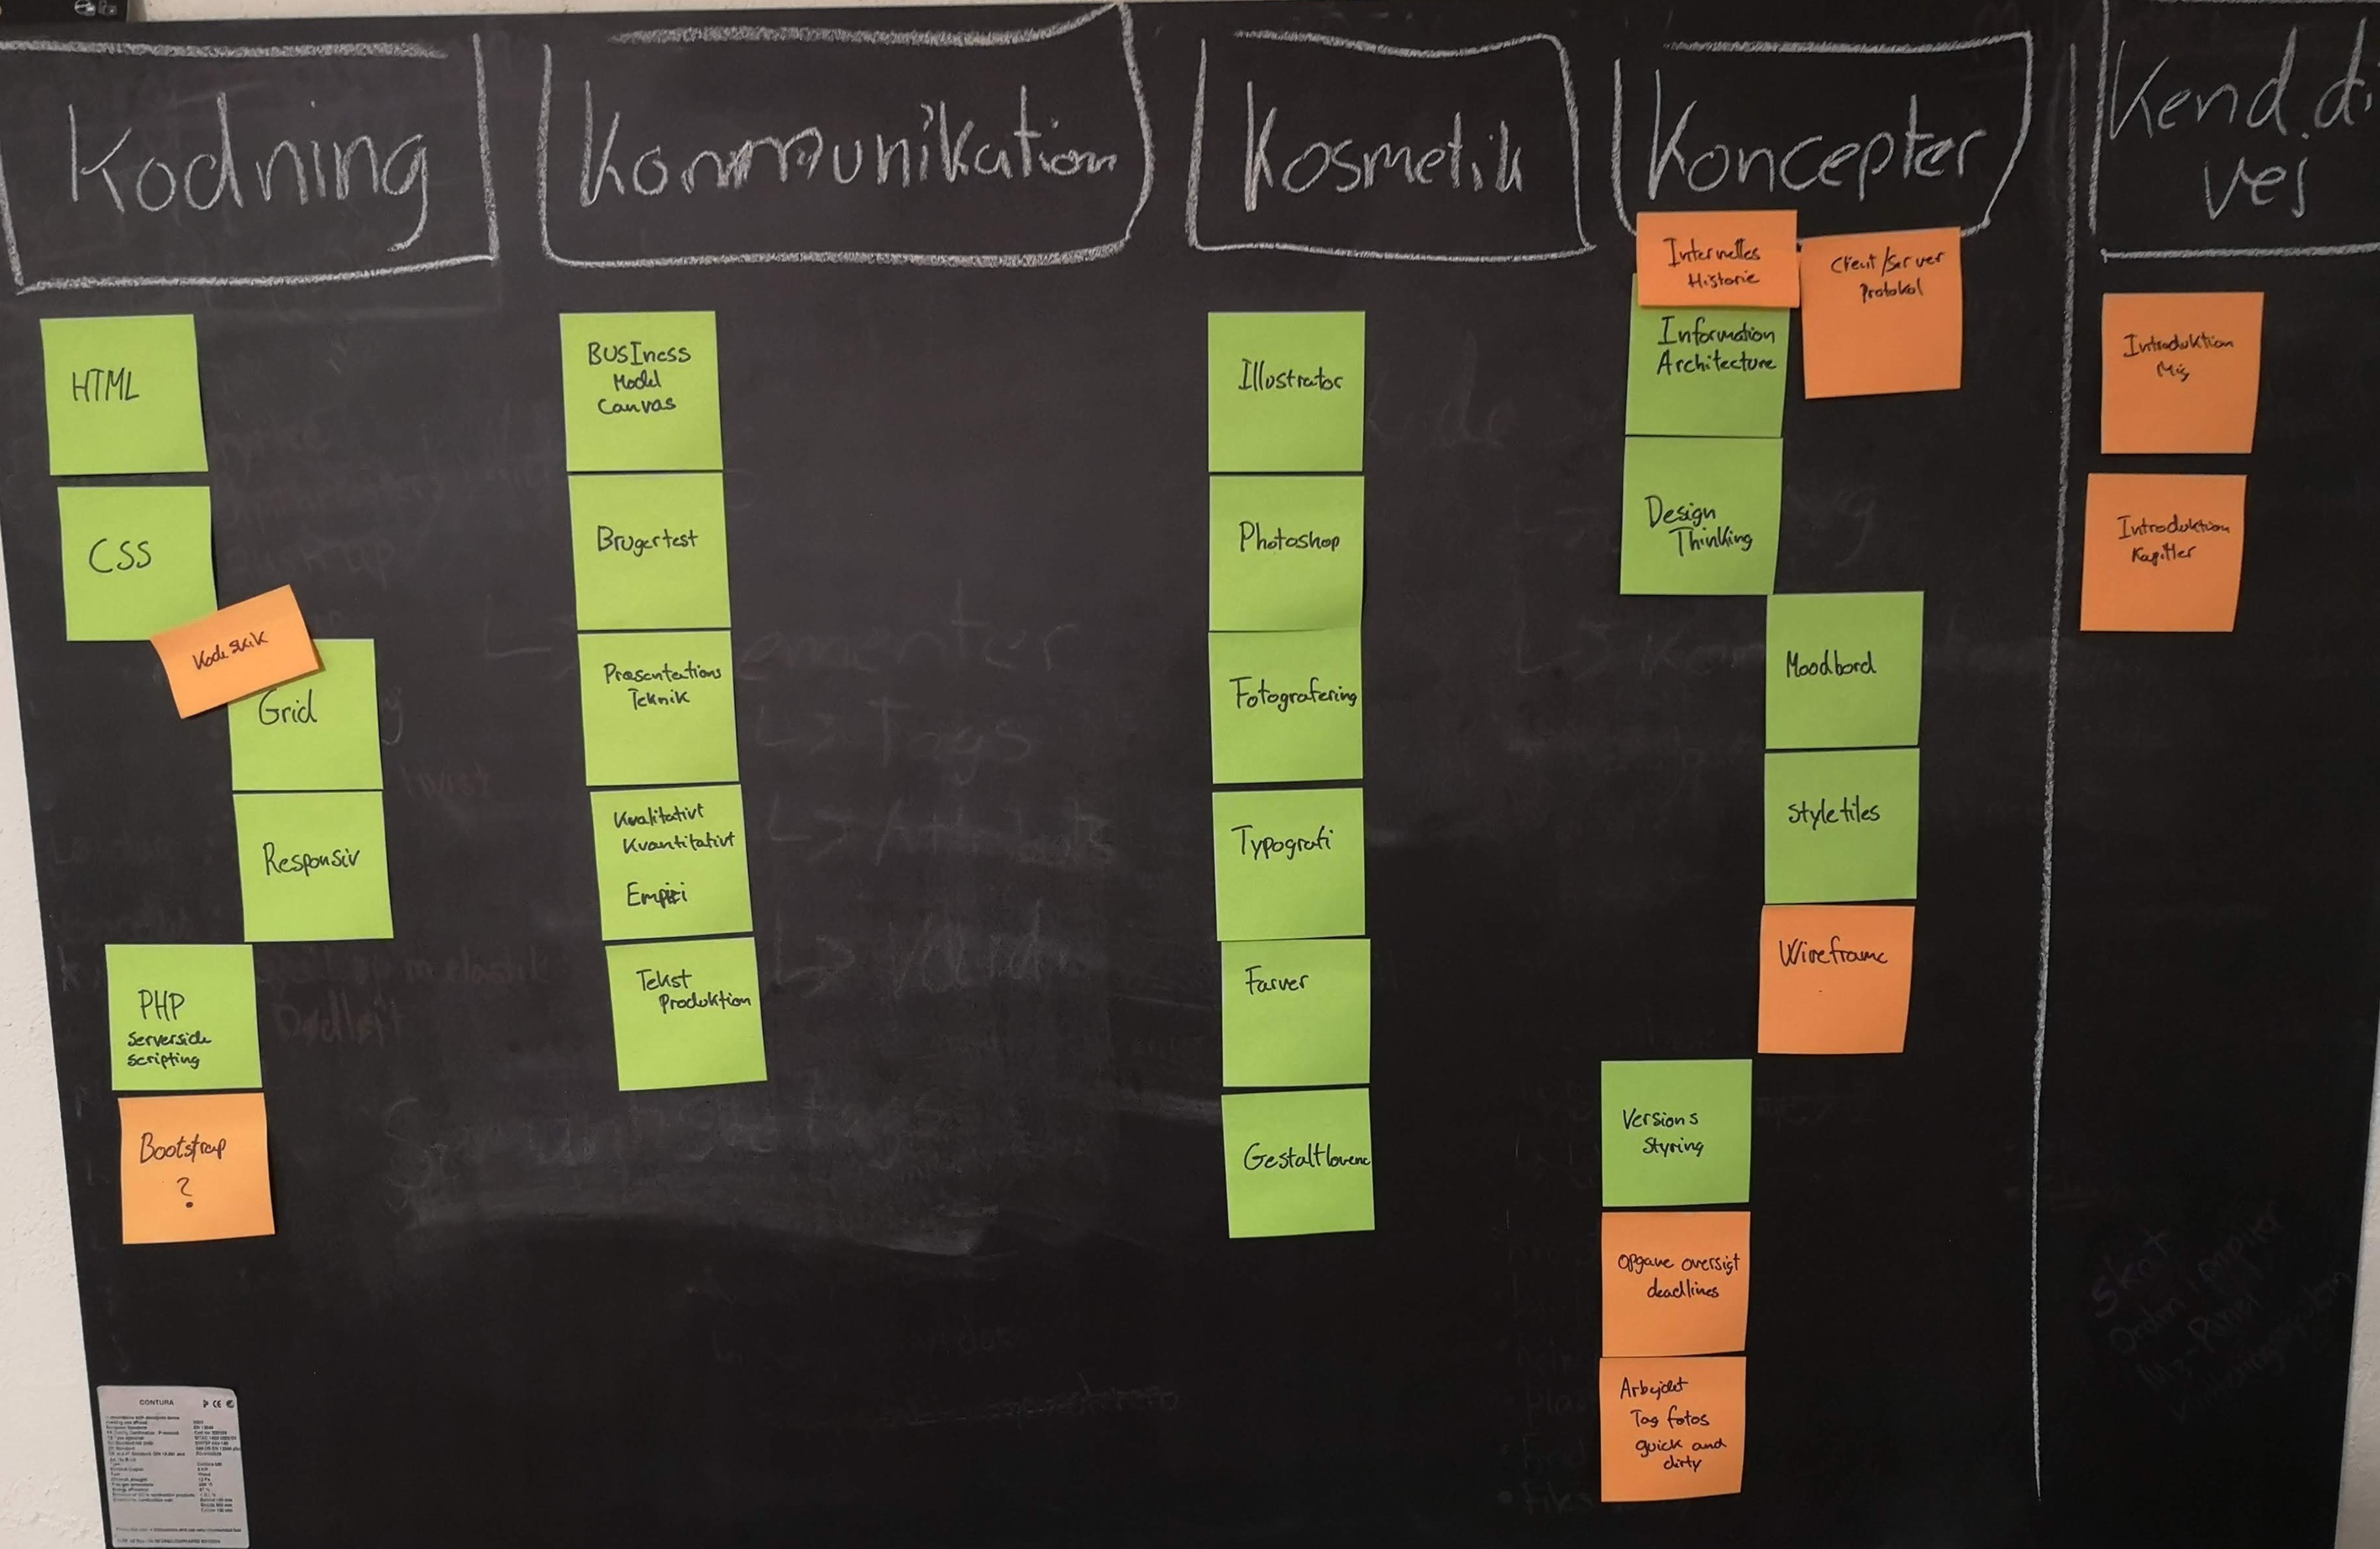 Kodning
Kommunikation
Kosmetik
Koncepter
Kend di
vej
HTML
CSS
Kode skik
Grid
Responsiv
PHP
Serverside
Scripting
Bootstrap
?
BUSIness
Model
Canvas
Brugertest
Præsentations
Teknik
Kvalitativt
Kvantitativt
Empiri
Tekst
Produktion
Illustrator
Photoshop
Fotografering
Typografi
Farver
Gestaltlovene
Internettes
Historie
Client/Server
Protokol
Information
Architecture
Design
Thinking
Moodbord
Style tiles
Wireframe
Versions
Styring
Opgave oversigt
deadlines
Arbejdet
Tag fotos
quick and
dirty
Introduktion
Mig
Introduktion
Kapitler
Tags
CONTURA
CE